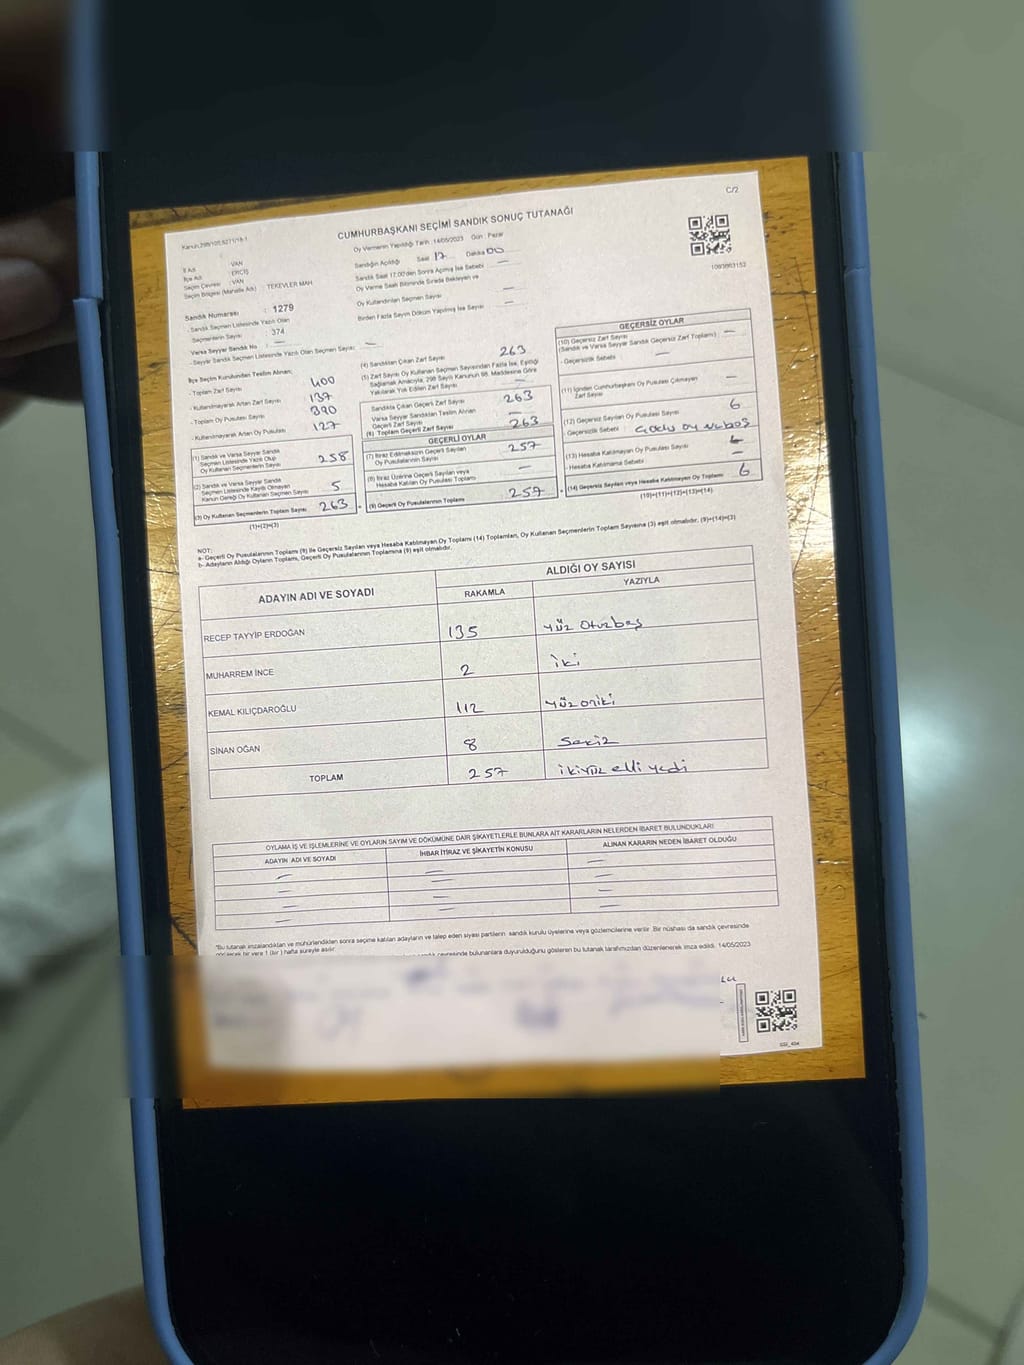 C/2
Kanun:298/105,6271/19-1
CUMHURBAŞKANI SEÇİMİ SANDIK SONUÇ TUTANAĞI
Oy Vermenin Yapıldığı Tarih :14/05/2023 Gün : Pazar
Sandığın Açıldığı Saat 17 Dakika 00
Sandık Saat 17:00'den Sonra Açılmış İse Sebebi —
Oy Verme Saati Bitiminde Sırada Bekleyen ve
Oy Kullandırılan Seçmen Sayısı —
Birden Fazla Sayım Döküm Yapılmış İse Sayısı —
1093663153
İl Adı : VAN
İlçe Adı : ERCİŞ
Seçim Çevresi : VAN
Seçim Bölgesi (Mahalle Adı) : TEKEVLER MAH
Sandık Numarası : 1279
- Sandık Seçmen Listesinde Yazılı Olan
Seçmenlerin Sayısı : 374
Varsa Seyyar Sandık No : —
- Seyyar Sandık Seçmen Listesinde Yazılı Olan Seçmen Sayısı: —
İlçe Seçim Kurulundan Teslim Alınan;
- Toplam Zarf Sayısı 400
- Kullanılmayarak Artan Zarf Sayısı 137
- Toplam Oy Pusulası Sayısı 390
- Kullanılmayarak Artan Oy Pusulası 127
(1) Sandık ve Varsa Seyyar Sandık
Seçmen Listesinde Yazılı Olup
Oy Kullanan Seçmenlerin Sayısı 258
(2) Sandık ve Varsa Seyyar Sandık
Seçmen Listesinde Kayıtlı Olmayan
Kanun Gereği Oy Kullanan Seçmen Sayısı 5
(3) Oy Kullanan Seçmenlerin Toplam Sayısı 263
(1)+(2)=(3)
(4) Sandıktan Çıkan Zarf Sayısı 263
(5) Zarf Sayısı Oy Kullanan Seçmen Sayısından Fazla İse, Eşitliği
Sağlamak Amacıyla, 298 Sayılı Kanunun 98. Maddesine Göre
Yakılarak Yok Edilen Zarf Sayısı —
Sandıkta Çıkan Geçerli Zarf Sayısı 263
Varsa Seyyar Sandıktan Teslim Alınan
Geçerli Zarf Sayısı —
(6) Toplam Geçerli Zarf Sayısı 263
GEÇERLİ OYLAR
(7) İtiraz Edilmeksizin Geçerli Sayılan
Oy Pusulalarının Sayısı 257
(8) İtiraz Üzerine Geçerli Sayılan veya
Hesaba Katılan Oy Pusulası Toplamı —
(9) Geçerli Oy Pusulalarının Toplamı 257
GEÇERSİZ OYLAR
(10) Geçersiz Zarf Sayısı
(Sandık ve Varsa Seyyar Sandık Geçersiz Zarf Toplamı) —
- Geçersizlik Sebebi —
(11) İçinden Cumhurbaşkanı Oy Pusulası Çıkmayan
Zarf Sayısı —
(12) Geçersiz Sayılan Oy Pusulası Sayısı 6
- Geçersizlik Sebebi :
(13) Hesaba Katılmayan Oy Pusulası Sayısı
- Hesaba Katılmama Sebebi —
(14) Geçersiz Sayılan veya Hesaba Katılmayan Oy Pusulası Toplamı 6
(10)+(11)+(12)+(13)=(14)
NOT:
a- Geçerli Oy Pusulalarının Toplamı (9) ile Geçersiz Sayılan veya Hesaba Katılmayan Oy Toplamı (14) Toplamları, Oy Kullanan Seçmenlerin Toplam Sayısına (3) eşit olmalıdır. (9)+(14)=(3)
b- Adayların Aldığı Oyların Toplamı, Geçerli Oy Pusulalarının Toplamına (9) eşit olmalıdır.
ADAYIN ADI VE SOYADI
ALDIĞI OY SAYISI
RAKAMLA YAZIYLA
RECEP TAYYİP ERDOĞAN 135 Yüz Otuzbeş
MUHARREM İNCE 2 iki
KEMAL KILIÇDAROĞLU 112 Yüz oniki
SİNAN OĞAN 8 Sekiz
TOPLAM 257 ikiyüz elli yedi
OYLAMA İŞ VE İŞLEMLERİNE VE OYLARIN SAYIM VE DÖKÜMÜNE DAİR ŞİKAYETLERLE BUNLARA AİT KARARLARIN NELERDEN İBARET BULUNDUKLARI
ADAYIN ADI VE SOYADI İHBAR İTİRAZ VE ŞİKAYETİN KONUSU ALINAN KARARIN NEDEN İBARET OLDUĞU
— — —
— — —
— — —
— — —
*Bu tutanak imzalandıktan ve mühürlendikten sonra seçime katılan adayların ve talep eden siyasi partilerin sandık kurulu üyelerine veya gözlemcilerine verilir. Bir nüshası da sandık çevresinde
görülecek bir yere 1 (bir ) hafta süreyle asılır.
çevresinde bulunanlara duyurulduğunu gösteren bu tutanak tarafımızdan düzenlenerek imza edildi. 14/05/2023